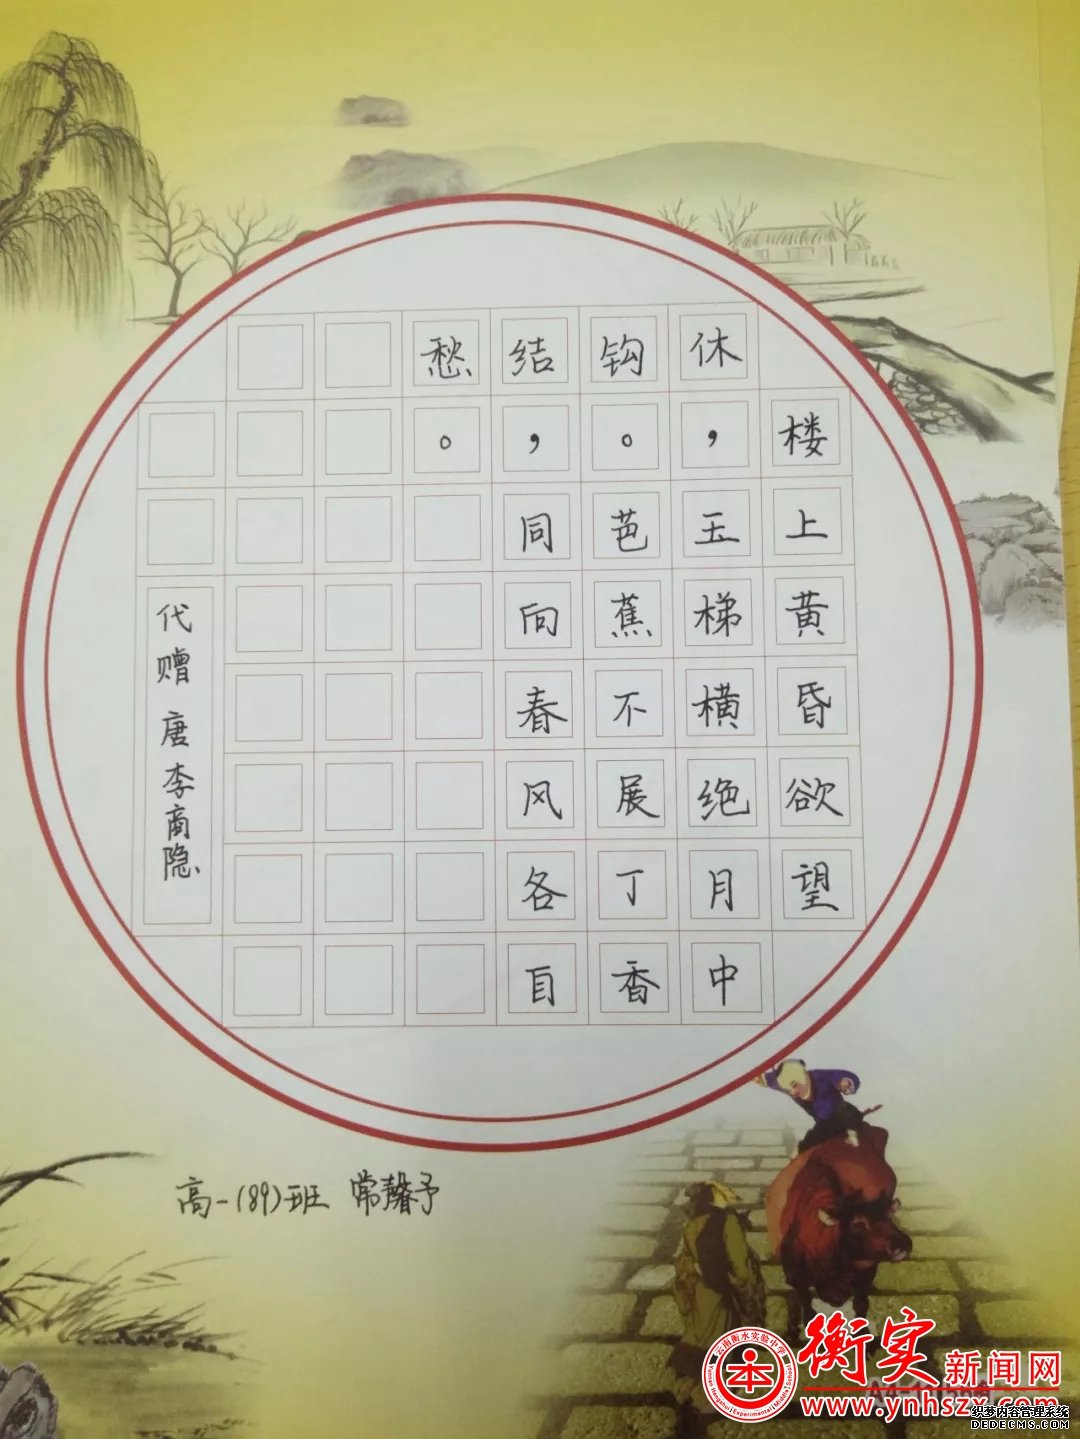 楼上黄昏欲望
休，玉梯横绝月中
钩。芭蕉不展丁香
结，同向春风各自
愁。
代赠 唐 李商隐
高一(89)班 常馨予
云南衡水实验中学
本
衡实新闻网
www.ynhszx.com
织梦内容管理系统
DEDECMS.COM